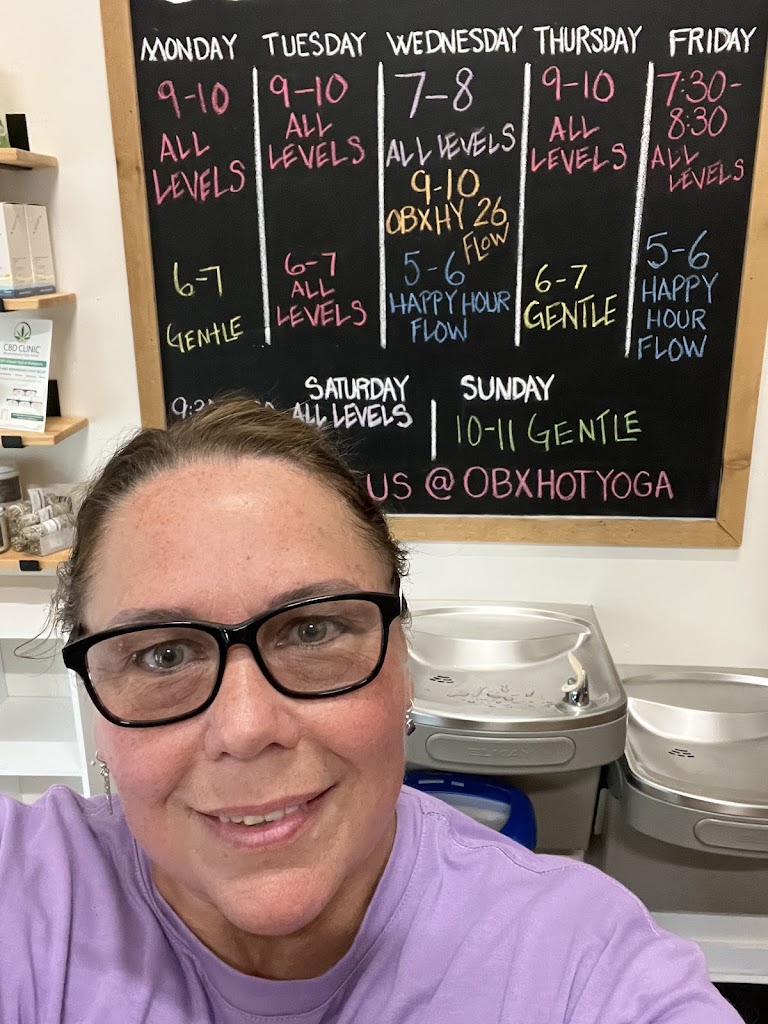 MONDAY TUESDAY WEDNESDAY THURSDAY FRIDAY
9-10
ALL
LEVELS
6-7
GENTLE
9-10
ALL
LEVELS
6-7
ALL
LEVELS
7-8
ALL LEVELS
9-10
OBXHY 26
FLOW
5-6
HAPPY HOUR
FLOW
9-10
ALL
LEVELS
6-7
GENTLE
7:30-
8:30
ALL
LEVELS
5-6
HAPPY
HOUR
FLOW
SATURDAY
ALL LEVELS
SUNDAY
10-11 GENTLE
US @ OBXHOTYOGA
CBD CLINIC
ELKAY